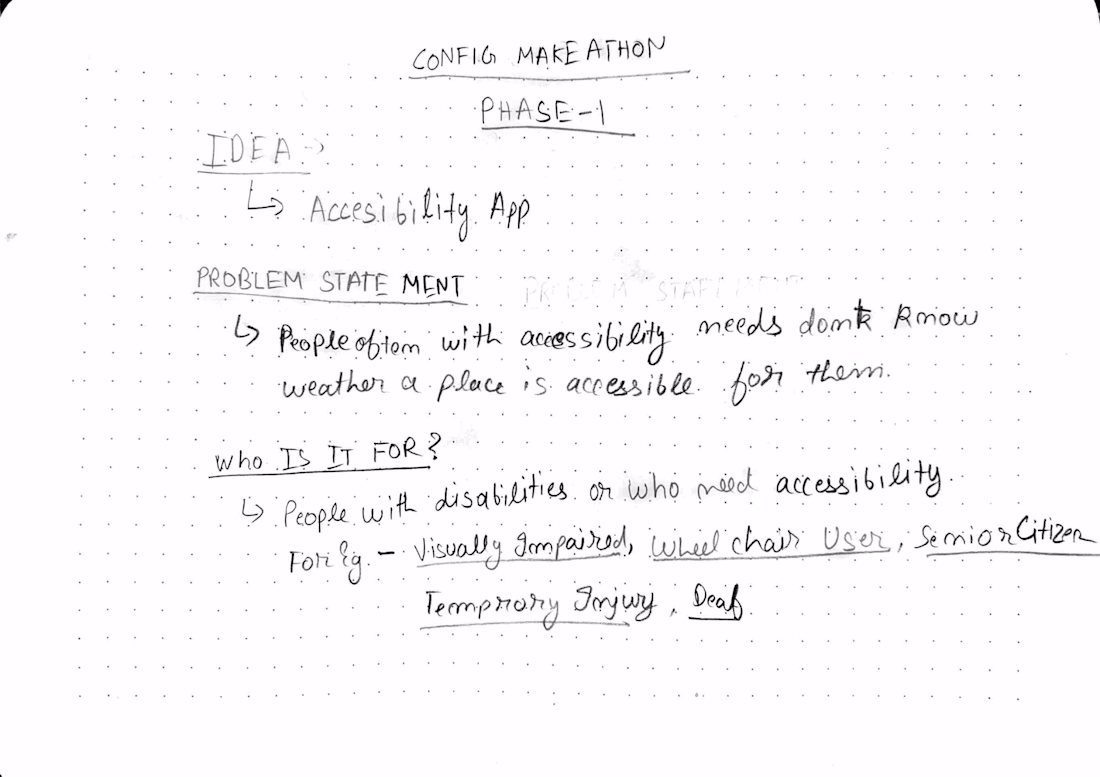 CONFIG MAKEATHON
PHASE-1
IDEA →
↳ Accesibility App
PROBLEM STATEMENT PROBLEM STATEMENT
↳ People often with accessibility needs don't know
weather a place is accessible for them.
Who IS IT FOR?
↳ People with disabilities or who need accessibility.
For Eg. - Visually Impaired, Wheel chair User, Senior Citizen
Temprory Injury, Deaf